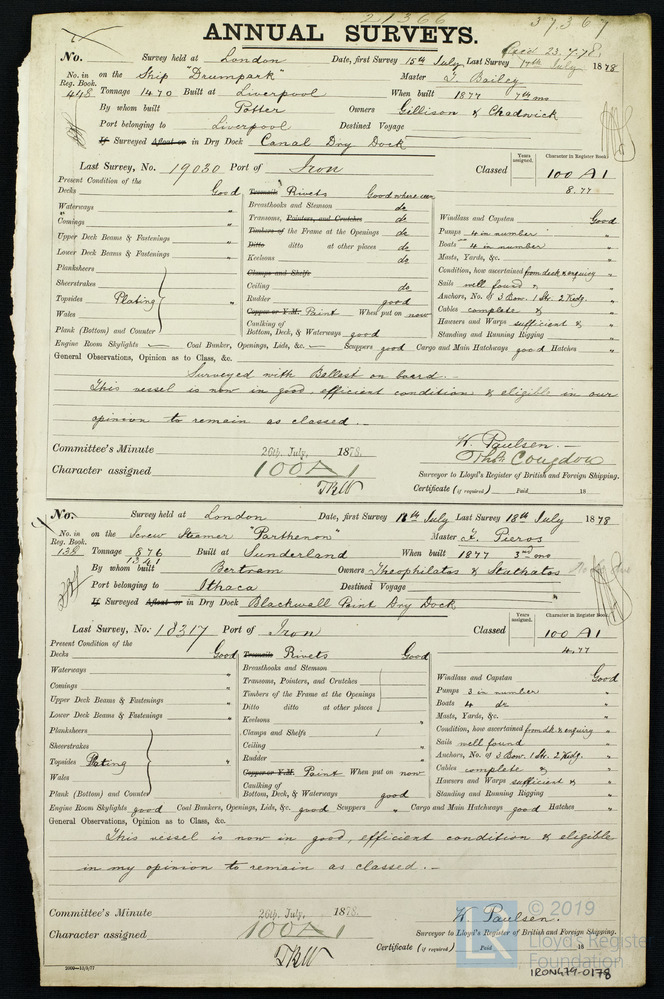 21366 37367
ANNUAL SURVEYS.
No. Survey held at London Date, first Survey 15th July Last Survey 17th July 1878
No. in Reg. Book. on the Ship "Drumpark" Master T. Bailey
448 Tonnage 1470 Built at Liverpool When built 1877 7th mo
By whom built Potter Owners Gillison & Chadwick
Port belonging to Liverpool Destined Voyage
If Surveyed Afloat or in Dry Dock Canal Dry Dock
Last Survey, No. 19030 Port of Iron Classed Years assigned. Character in Register Book. 100 A1
8.77
Present Condition of the
Decks Good Treenails Rivets Good where seen
Waterways " Breasthooks and Stemson do Windlass and Capstan Good
Comings " Transoms, Pointers, and Crutches do Pumps 4 in number "
Upper Deck Beams & Fastenings " Timbers of the Frame at the Openings do Boats 4 in number "
Lower Deck Beams & Fastenings " Ditto ditto at other places do Masts, Yards, &c. "
Planksheers Keelsons do Condition, how ascertained from deck & enquiry
Sheerstrakes Clamps and Shelfs Sails well found & "
Topsides Plating " Ceiling do Anchors, No. of 3 Bow. 1 Str. 2 Kedg.
Wales Rudder good Cables complete & "
Plank (Bottom) and Counter Copper or Y.M. Paint When put on now Hawsers and Warps sufficient & "
Caulking of Bottom, Deck, & Waterways good Standing and Running Rigging "
Engine Room Skylights — Coal Bunker, Openings, Lids, &c. — Scuppers good Cargo and Main Hatchways good Hatches "
General Observations, Opinion as to Class, &c.
Surveyed with Ballast on board. -
This vessel is now in good, efficient condition & eligible in our
opinion to remain as classed. -
W. Paulsen. -
Committee's Minute 26th July, 1878. Thos Congdon
Character assigned 100A1 Surveyor to Lloyd's Register of British and Foreign Shipping.
Certificate (if required) Paid 18
No. Survey held at London Date, first Survey 18th July Last Survey 18th July 1878
No. in Reg. Book. on the Screw Steamer "Parthenon" Master F. Pieros
138 Tonnage 876 Built at Sunderland When built 1877 3rd mo
1341
By whom built Bertram Owners Theophilatos & Stathatos
Port belonging to Ithaca Destined Voyage
If Surveyed Afloat or in Dry Dock Blackwall Point Dry Dock
Last Survey, No. 18317 Port of Iron Classed Years assigned. Character in Register Book. 100 A1
4.77
Present Condition of the
Decks Good Treenails Rivets Good
Waterways Breasthooks and Stemson Windlass and Capstan Good
Comings Transoms, Pointers, and Crutches Pumps 3 in number "
Upper Deck Beams & Fastenings " Timbers of the Frame at the Openings Boats 4 do "
Lower Deck Beams & Fastenings " Ditto ditto at other places Masts, Yards, &c. "
Planksheers Keelsons Condition, how ascertained from dk & enquiry
Sheerstrakes Clamps and Shelfs Sails well found "
Topsides Plating Ceiling " Anchors, No. of 3 Bow. 1 Str. 2 Kedg.
Wales Rudder " Cables complete & "
Plank (Bottom) and Counter Copper or Y.M. Paint When put on now Hawsers and Warps sufficient & "
Caulking of Bottom, Deck, & Waterways good Standing and Running Rigging "
Engine Room Skylights good Coal Bunkers, Openings, Lids, &c. good Scuppers " Cargo and Main Hatchways good Hatches "
General Observations, Opinion as to Class, &c.
This vessel is now in good, efficient condition & eligible
in my opinion to remain as classed. -
Committee's Minute 26th July, 1878. W. Paulsen.
Character assigned 100A1 Surveyor to Lloyd's Register of British and Foreign Shipping.
Certificate (if required) Paid 18
LR © 2019
Lloyd's Register
Foundation
IRON479-0178